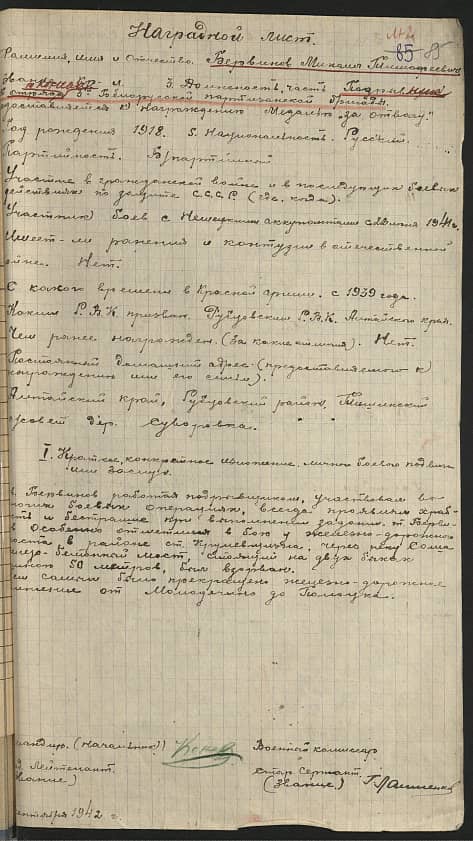 Наградной лист.
85
Фамилия, имя и отчество. Бервинов Михаил Тимофеевич
Звание 3. Должность, часть Подрывник
5-й Белорусской партизанской бригады.
доставляется к награждению Медалью "за отвагу".
Год рождения 1918. 5. Национальность. Русский.
Партийность. Б/партийный
Участие в гражданской войне и в последующих боевых
действиях по защите С.С.С.Р. (где, когда).
Участник боев с Немецкими оккупантами с июня 1941 г.
Имеет-ли ранения и контузии в отечественной
войне. Нет.
С какого времени в Красной армии. с 1939 года.
Каким Р.В.К призван. Рубцовским Р.В.К. Алтайского края.
Чем ранее награжден. (за какие отличия). Нет.
Постоянный домашний адрес. (представляемого к
награждению или его семьи).
Алтайский край, Рубцовский район,
совет дер. Суворовка.
I. Краткое, конкретное изложение, личного боевого подвига
или заслуг.
т. Бервинов работая подрывником, участвовал во
многих боевых операциях, всегда проявлял храб-
рость и бесстрашие при выполнении задания. т. Берви-
нов Особенно отличился в бою у железно-дорожного
моста в районе ст. Крулевщизна, через реку
железо-бетонный мост, стоящий на двух быках
длиною 50 метров, был взорван.
тем самым было прекращено железно-дорожное
движение от Молодечно до Полоцка.
Командир. (Начальник) Военный комиссар
Лейтенант. Стар. Сержант.
(Звание) (Звание)
сентября 1942 г.